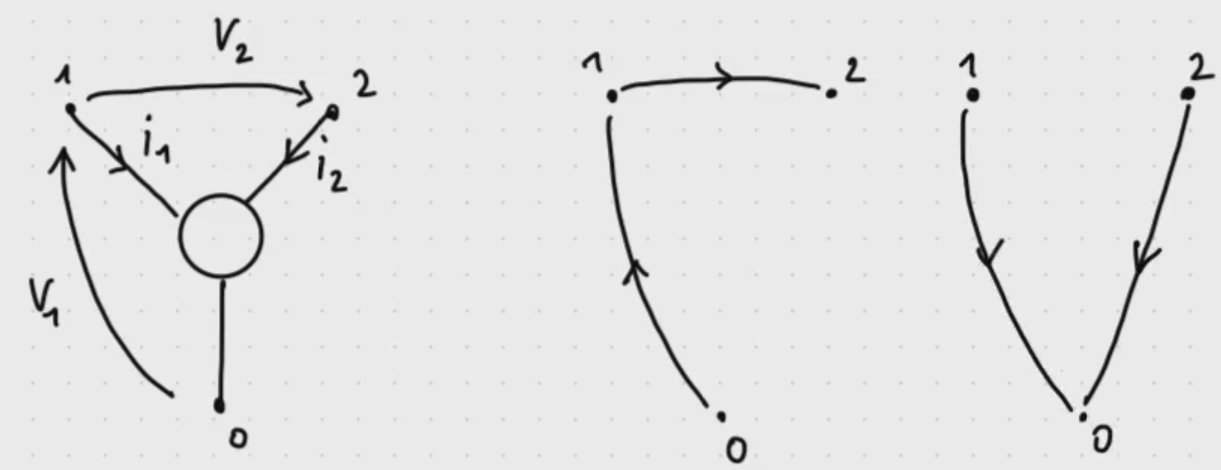 V₂
1
2
i₁
i₂
V₁
0
1
2
0
1
2
0